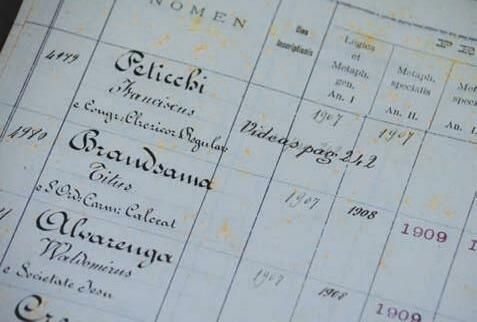 NOMEN
Dies
inscriptionis
Logica
et
Metaph.
gen.
An. I
Metaph.
specialis
An. II.
An.
4979
Pelicchi
Franciscus
e Congr. Clericor. Regular.
1907
1907
Videas pag 242
4980
Brandsama
Titus
e S. Ord. Carm. Calceat
1907
1908
1909
Alvarenga
Waldomirus
e Societate Jesu
1907
1908
1909